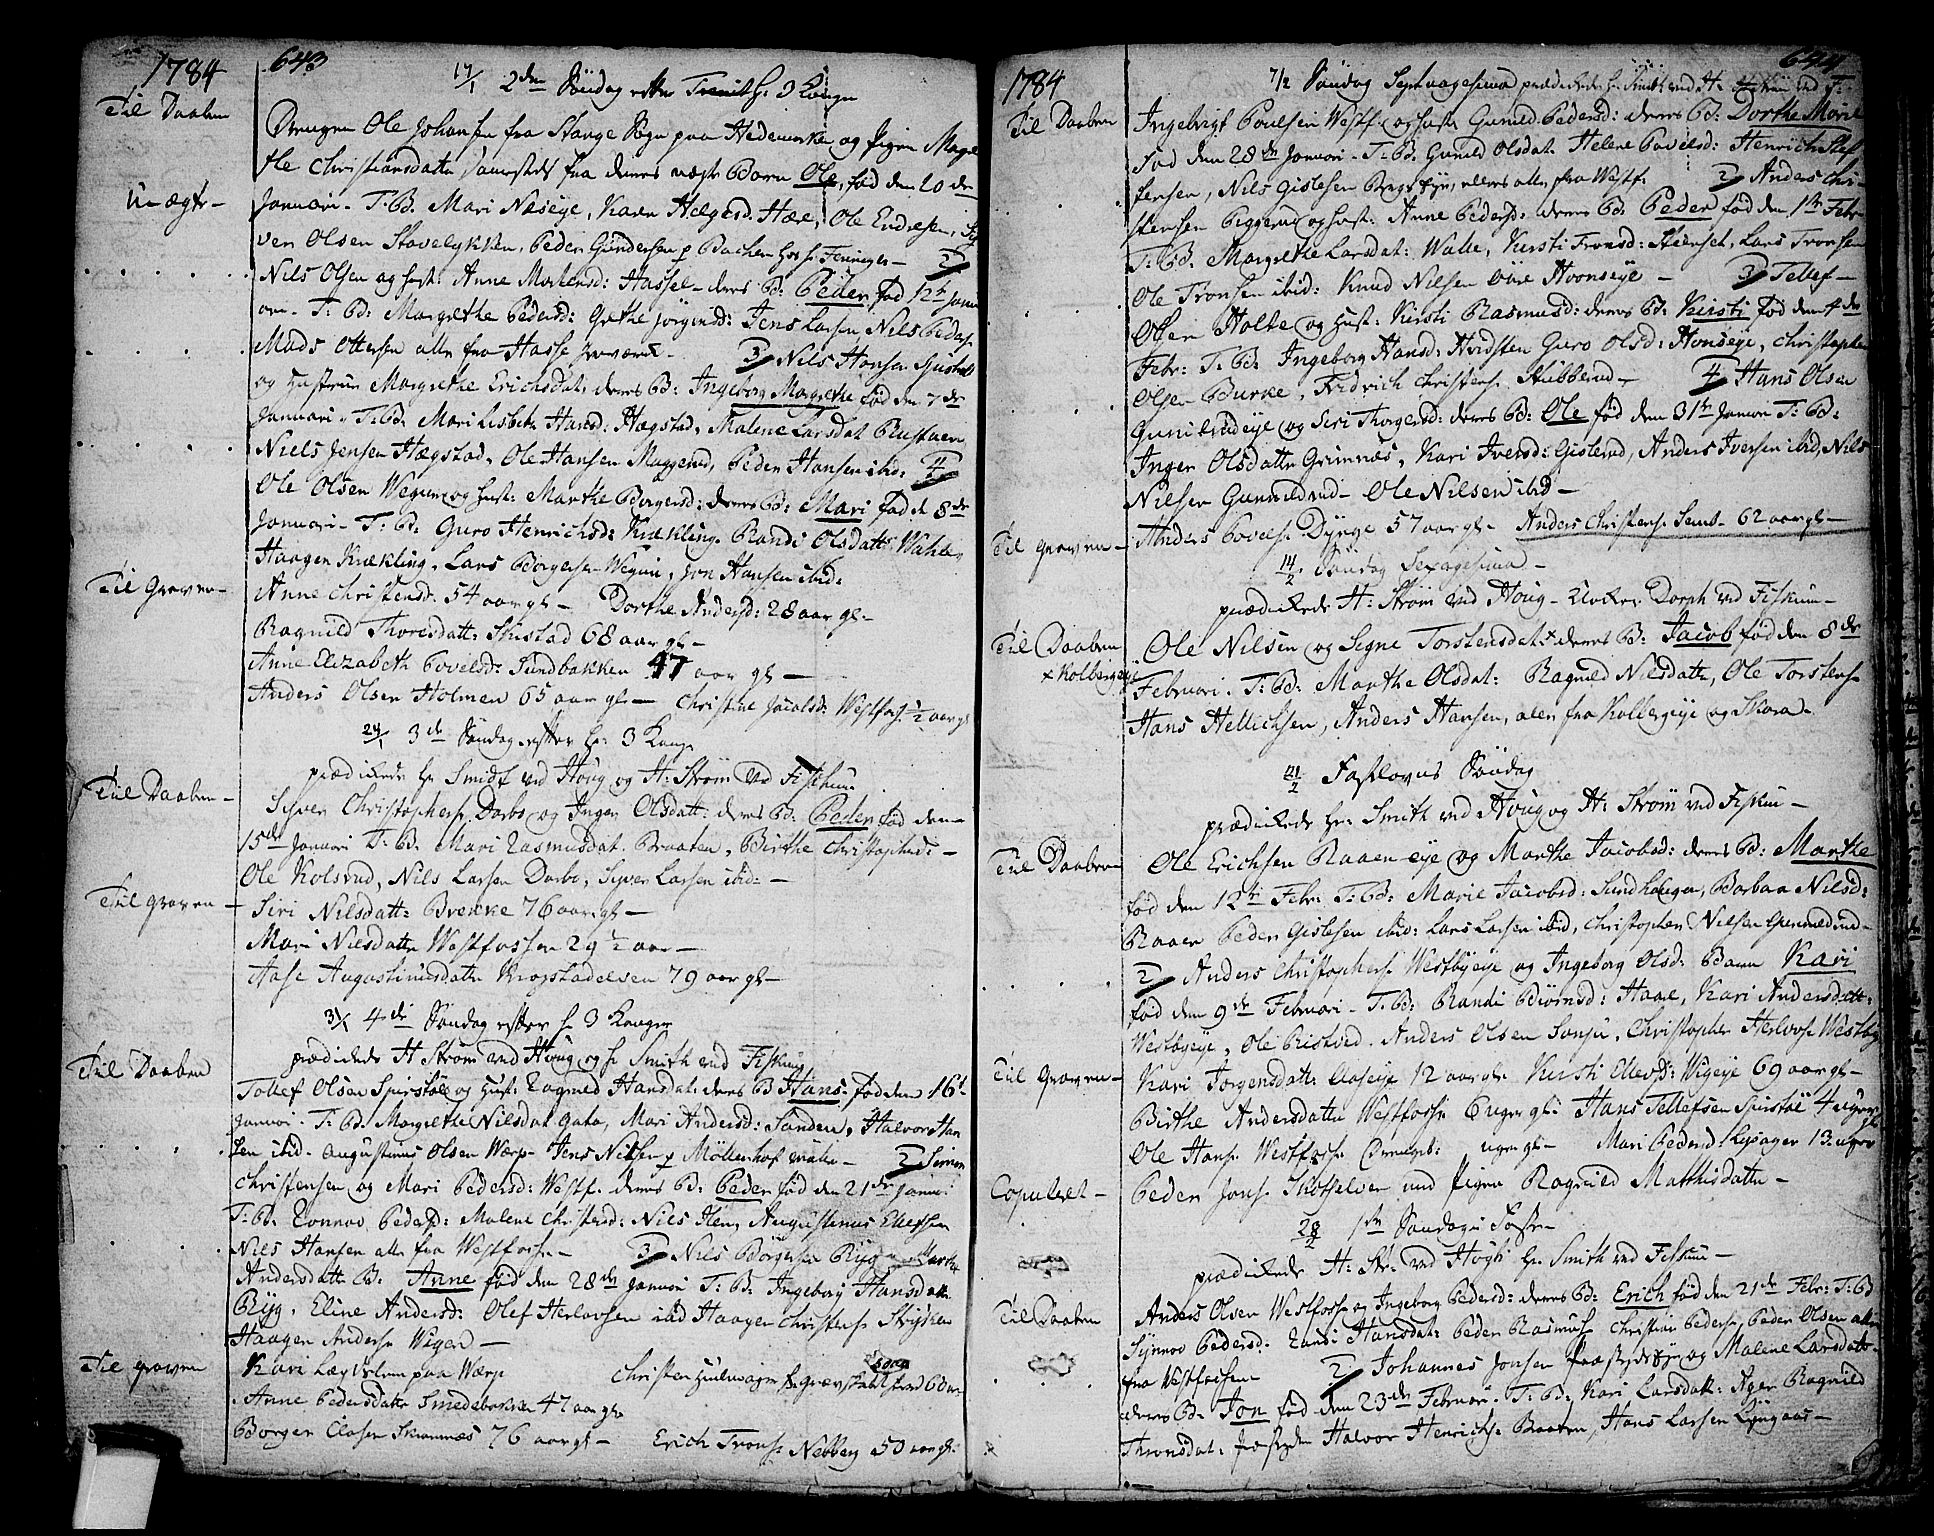 1784 643
17/1 2den Søndag efter Trinit h: 3 Konger
Til Daaben
Drengen Ole Johansen fra Stange Sogn paa Hedemarken og Pigen Magre
the Christiansdatter sammesteds fra deres uægte Barn Ole, fød den 20de
U-ægte-
Januari. T: B: Mari Næseye, Karen Helgesd: Hæe, Ole Endresen, Sy
ver Olsen Stavelykken, Peder Gundersen p Bachen hos h: Feninger- 2/
Nils Olsen og Hust: Anne Mortensd: Hassel- deres B: Peder fød 12te Janu
ari- T: B: Margrethe Pedersd: Grethe Jørgensd: Jens Larsen Nils Peders:
Mads Ottersen alle fra Hassel Jernværk- 3/ Nils Hansen
og Hustrue Margrethe Erichsdat: deres B: Ingeborg Margrethe fød den 7de
Januari. T: B: Mari Lisbeth Hansd: Hægstad, Malene Larsdat: Rustaen
Niels Jensen Hægstad, Ole Hansen Muggerud, Peder Hansen ibid. 4/
Ole Olsen Wegun og Hust: Marthe Borgersd: deres B: Mari fød d 8de
Januari- T: B: Guro Henrichsd: Krækling. Randi Olsdatt: Wahle,
Haagen Krækling, Lars Borgerse Wegun, Jon Hansen ibid:
Til Graven-
Anne Christensd: 54 aar gl- Dorthe Andersd: 28 aar gl-
Ragnild Thoresdatt: Skistad 68 aar gl-
Anne Elizabeth Povelsd: Sundbakken 47 aar gl-
Anders Olsen Holmen 65 aar gl- Christine Jacobsd: Westfoss: 1/2 aar gl
24/1 3de Søndag efter h: 3 Konger
prædikede Hr Smidt ved Houg og H: Strøm ved Fiskum:
Til Daaben-
Syver Christophers: Dorbo og Inger Olsdatt: deres B: Peder fød den
15de Januari T: B: Mari Rasmusdat: Braaten, Birthe Christophersd:-
Ole Kolsrud, Nils Larsen Dorbo, Syver Larsen ibid:-
Til Graven-
Siri Nilsdatt: Brekke 76 aar gl-
Mari Nilsdatter Westfossen 29 1/2 aar-
Aase Augustinusdatter Krogstadelsen 79 aar gl-
31/1 4de Søndag efter h 3 Konger
prædikede H Strøm ved Houg og h: Smith ved Fiskum
Til Daaben
Tollef Olsen Spirstøl og Hust: Ragnild Hansdat: deres B Hans fød den 16t
Januari- T: B: Margrethe Nilsdat: Gata, Mari Andersd: Sanden, Halvor Han
sen ibid- Augustinus Olsen Wærp- Jens Nilsen p Møllenhof - 2/ Simon
Christensen og Mari Pedersd: Westf: deres B: Peder fød den 21de Januari
T: B: Ronnov Pedersd: Malene Christensd: Nils Iler, Augustinus Ellefsen
Nils Hansen alle fra Westfosse- 3/ Nils Børgersen Ryg og Marthe
Andersdatter B: Anne fød den 28de Januari T: B: Ingeborg Hansdatter
Ryg, Eline Andersd: Olef Herlovsen ibid Haagen Christens:
Haagen Anderse Weger-
Til Graven
Kari Lægvolden paa Wærp Christen
Anne Pedersdatter Smedebakken 47 aar gl-
Borger Clasen Skramnæs 76 aar gl- Erich Trons: Nebberg 50 aar gl-
1784 644
7/2 Søndag Septuagesima prædikede h: Smith ved H:
Til Daaben
Ingebrigt Poulsen Westf: og Hust: Gunild Pedersd: deres B: Dorthe Marie
fød den 28de Januari- T: B: Gunild Olsdat: Helene Povelsd: Henrich
Jensen, Nils Gislesen, alle fra Westf: 2/ Anders Chri-
stensen Peggerud og Hust: Anne Pedersd: deres B: Peder fød den 1ste Febr
T: B: Margrethe Larsdat: Walle, Kirsti Tronsd: Stenset, Lars Tronsen
Ole Tronsen ibid: Knud Nilsen Hoenseye- 3/ Tellef-
Olsen Holte og Hust: Kirsti Rasmusd: deres B: Kirsti fød den 4de
Febr: T: B: Ingeborg Hansd: Guro Olsd: Honseye, Christopher
Olsen Burke, Fridrich Christens: Stubberud- 4/ Hans Olsen
Gunildrudeye og Siri Thorgersd: deres B: Ole fød den 31te Januar T: B:
Inger Olsdatter Grimnæs, Kari Iversd: Gislerud, Anders Iversen ibid, Nils
Nilsen Gunnildrud- Ole Nilsen ibid-
Til Graven-
Anders Povelse Dynge 57 aar gl- Anders Christens: Sems- 62 aar gl-
14/2 Søndag Sexagesima-
prædikede H: Strøm ved Houg- Klokker Dorph ved Fiskum-
Til Daaben
x Kolbergeye
Ole Nilsen og Segne Torstensdat: x deres B: Jacob fød den 8de
Februari. T: B: Marthe Olsdat: Ragnild Nilsdatter, Ole Torstens:
Hans Hellichsen, Anders Hansen, alle fra Kolbergeye og Skara-
21/2 Fastelavns Søndag
prædikede Hr: Smith ved Houg og H: Strøm ved Fiskum-
Til Daaben
Ole Erichsen Raaen eye og Marthe Jacobsd: deres B: Marthe
fød den 12te Febr: T: B: Marie Jacobsd: Sundhaugen, Barbara Nilsd:
Raaen Peder Gislesen ibid: Lars Larsen ibid, Christopher Nilsen Gunnildrud-
2/ Anders Christophers: Westbyeye og Ingeborg Olsd: Barn Kari
fød den 9de Februari- T: B: Randi Biørnsd: Haae, Kari Andersdatt:
Westbyeye, Ole Ristved, Anders Olsen Sonju, Christopher Herlovs: Westby
Til Graven-
Kari Jorgensdatt: Aaseye 12 aar gl- Kirsti Ellevsd: Wegeye 69 aar gl-
Birthe Andersdatter Westfosse 6 uger gl- Hans Tellefsen Spirstøl 4 uger gl:
Ole Hans: Westfosse uger gl- Mari Pedersd: Lysager 13 uger
Copuleret-
Peder Jons: Skotselven med Pigen Ragnild Matthisdatter-
28/2 1ste Søndag i Faste-
prædikede H: Str: ved Hough Hr: Smith ved Fiskum-
Til Daaben
Anders Olsen Westfosse og Ingeborg Pedersd: deres B: Erich fød den 21de Febr: T: B
Synnov Pedersd: Randi Hansdat: Peder Rasmus: Christian Peders: Peder Olsen alle
fra Westfossen 2/ Johannes Jonsen og Malene Larsdatt:
deres B: Jon fød den 23de Februari- T: B: Kari Larsdatt: Ager Ragnild
Thronsdat: Halvor Henrichs: Braaten, Hans Larsen Lyngaas-